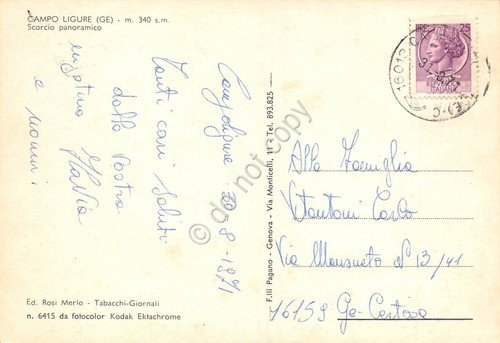 CAMPO LIGURE (GE) - m. 340 s.m.
Scorcio panoramico
Campoligure 30-8-1971
Tanti cari saluti
dalla vostra
Flavia
e nonni
Ed. Rosi Merlo - Tabacchi-Giornali
n. 6415 da fotocolor Kodak Ektachrome
F.lli Pagano - Genova - Via Monticelli, 11 - Tel. 893.825
do not copy
16013
Alla Famiglia
Vantoni Carlo
Via Mansueto N° 13/41
16159 Ge-Certosa